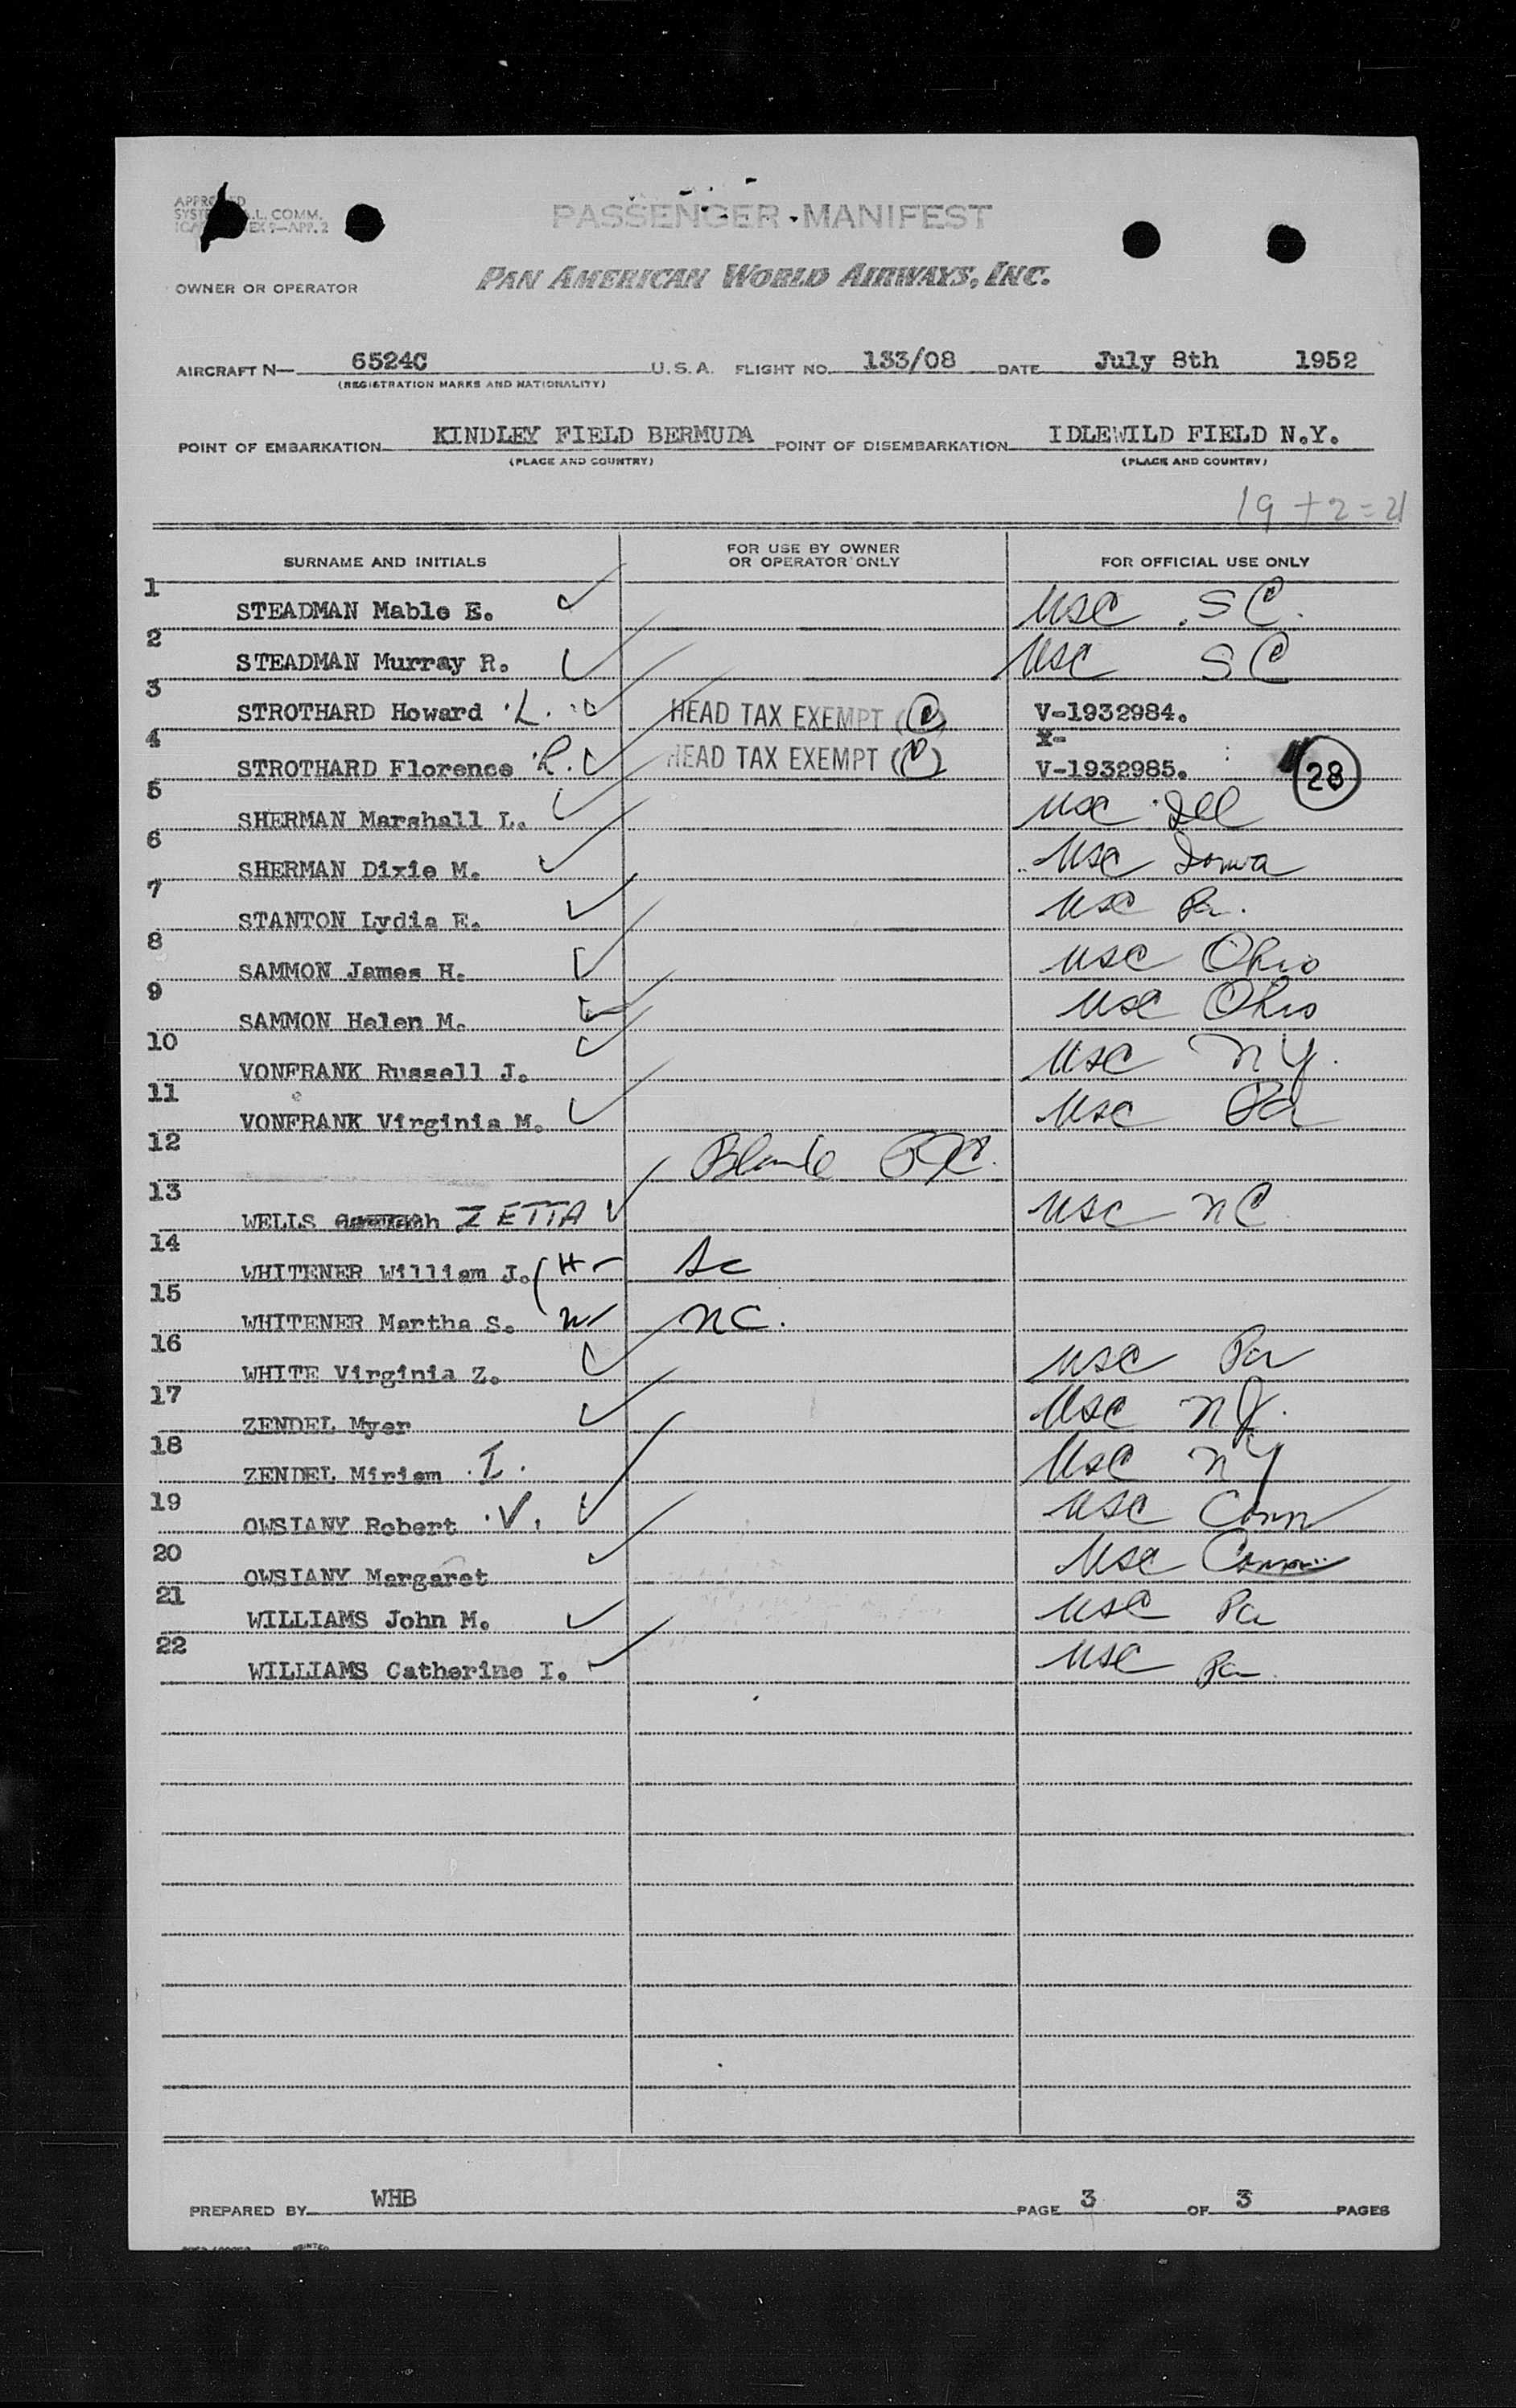 PASSENGER MANIFEST
L. COMM.
APP. 2
OWNER OR OPERATOR
PAN AMERICAN WORLD AIRWAYS, INC.
AIRCRAFT N— 6524C U.S.A. FLIGHT NO. 133/08 DATE July 8th 1952
(REGISTRATION MARKS AND NATIONALITY)
POINT OF EMBARKATION KINDLEY FIELD BERMUDA POINT OF DISEMBARKATION IDLEWILD FIELD N.Y.
(PLACE AND COUNTRY) (PLACE AND COUNTRY)
19 + 2 = 21
SURNAME AND INITIALS FOR USE BY OWNER OR OPERATOR ONLY FOR OFFICIAL USE ONLY
1 STEADMAN Mable E. USC SC.
2 STEADMAN Murray R. USC SC
3 STROTHARD Howard L. HEAD TAX EXEMPT V-1932984.
X-
4 STROTHARD Florence R. HEAD TAX EXEMPT V-1932985. 28
5 SHERMAN Marshall L. USC Ill
6 SHERMAN Dixie M. USC Iowa
7 STANTON Lydia E. USC Pa.
8 SAMMON James H. USC Ohio
9 SAMMON Helen M. USC Ohio
10 VONFRANK Russell J. USC NY.
11 VONFRANK Virginia M. USC Pa
12 Blank
13 WELLS ZETTA USC NC
14 WHITENER William J. (H SC
15 WHITENER Martha S. W NC.
16 WHITE Virginia Z. USC Pa
17 ZENDEL Myer USC NJ.
18 ZENDEL Miriam I. USC NY
19 OWSIANY Robert V. USC Conn
20 OWSIANY Margaret USC Conn
21 WILLIAMS John M. USC Pa
22 WILLIAMS Catherine I. USC Pa
PREPARED BY WHB PAGE 3 OF 3 PAGES